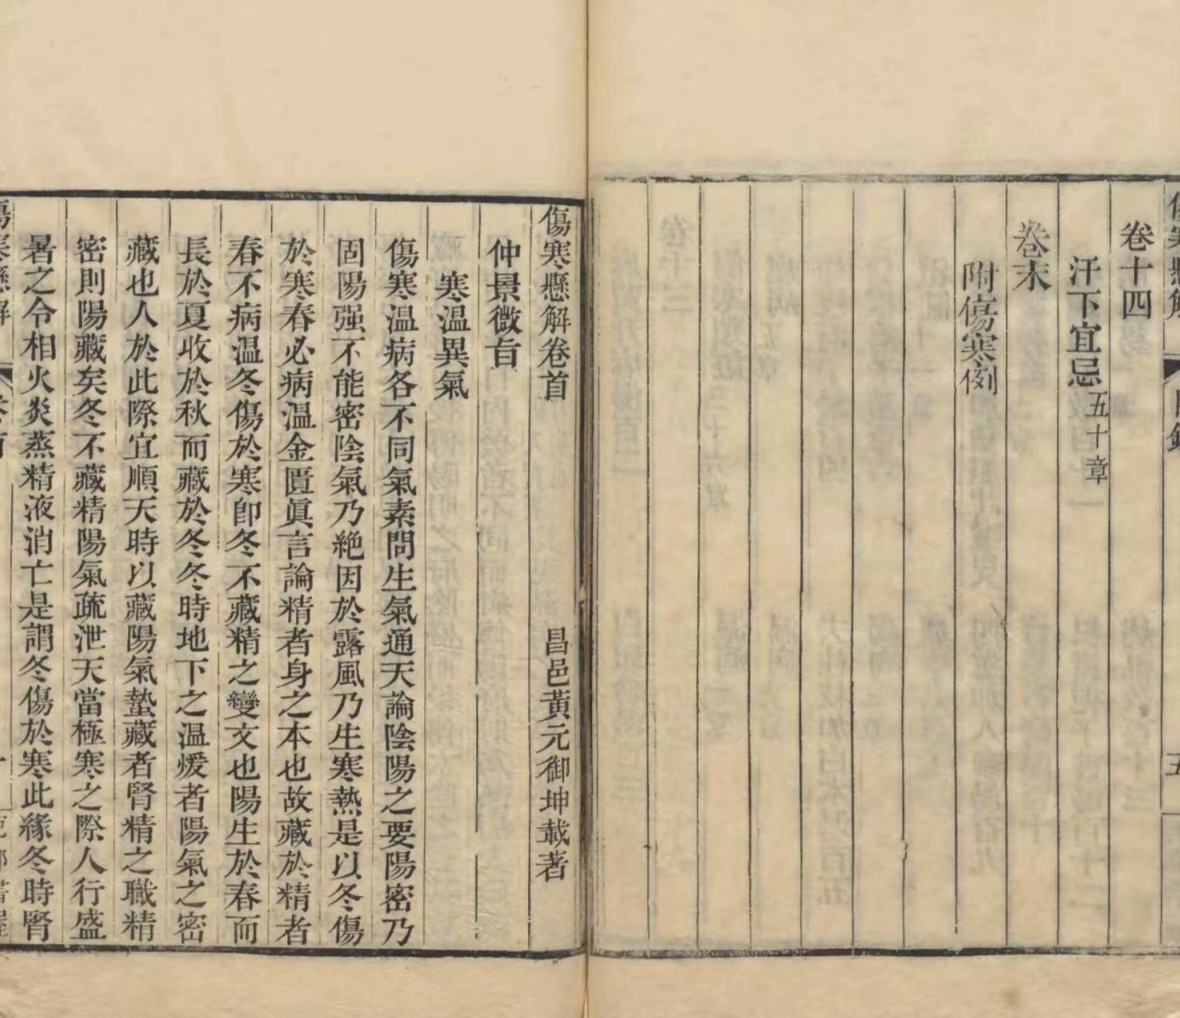 卷十四
汗下宜忌五十章
卷末
附傷寒例
五
傷寒懸解卷首
昌邑黃元御坤載著
仲景微旨
寒溫異氣
傷寒溫病各不同氣素問生氣通天論陰陽之要陽密乃
固陽强不能密陰氣乃絶因於露風乃生寒熱是以冬傷
於寒春必病溫金匱眞言論精者身之本也故藏於精者
春不病溫冬傷於寒卽冬不藏精之變文也陽生於春而
長於夏收於秋而藏於冬冬時地下之溫煖者陽氣之密
藏也人於此際宜順天時以藏陽氣蟄藏者腎精之職精
密則陽藏矣冬不藏精陽氣疏泄天當極寒之際人行盛
暑之令相火炎蒸精液消亡是謂冬傷於寒此緣冬時腎